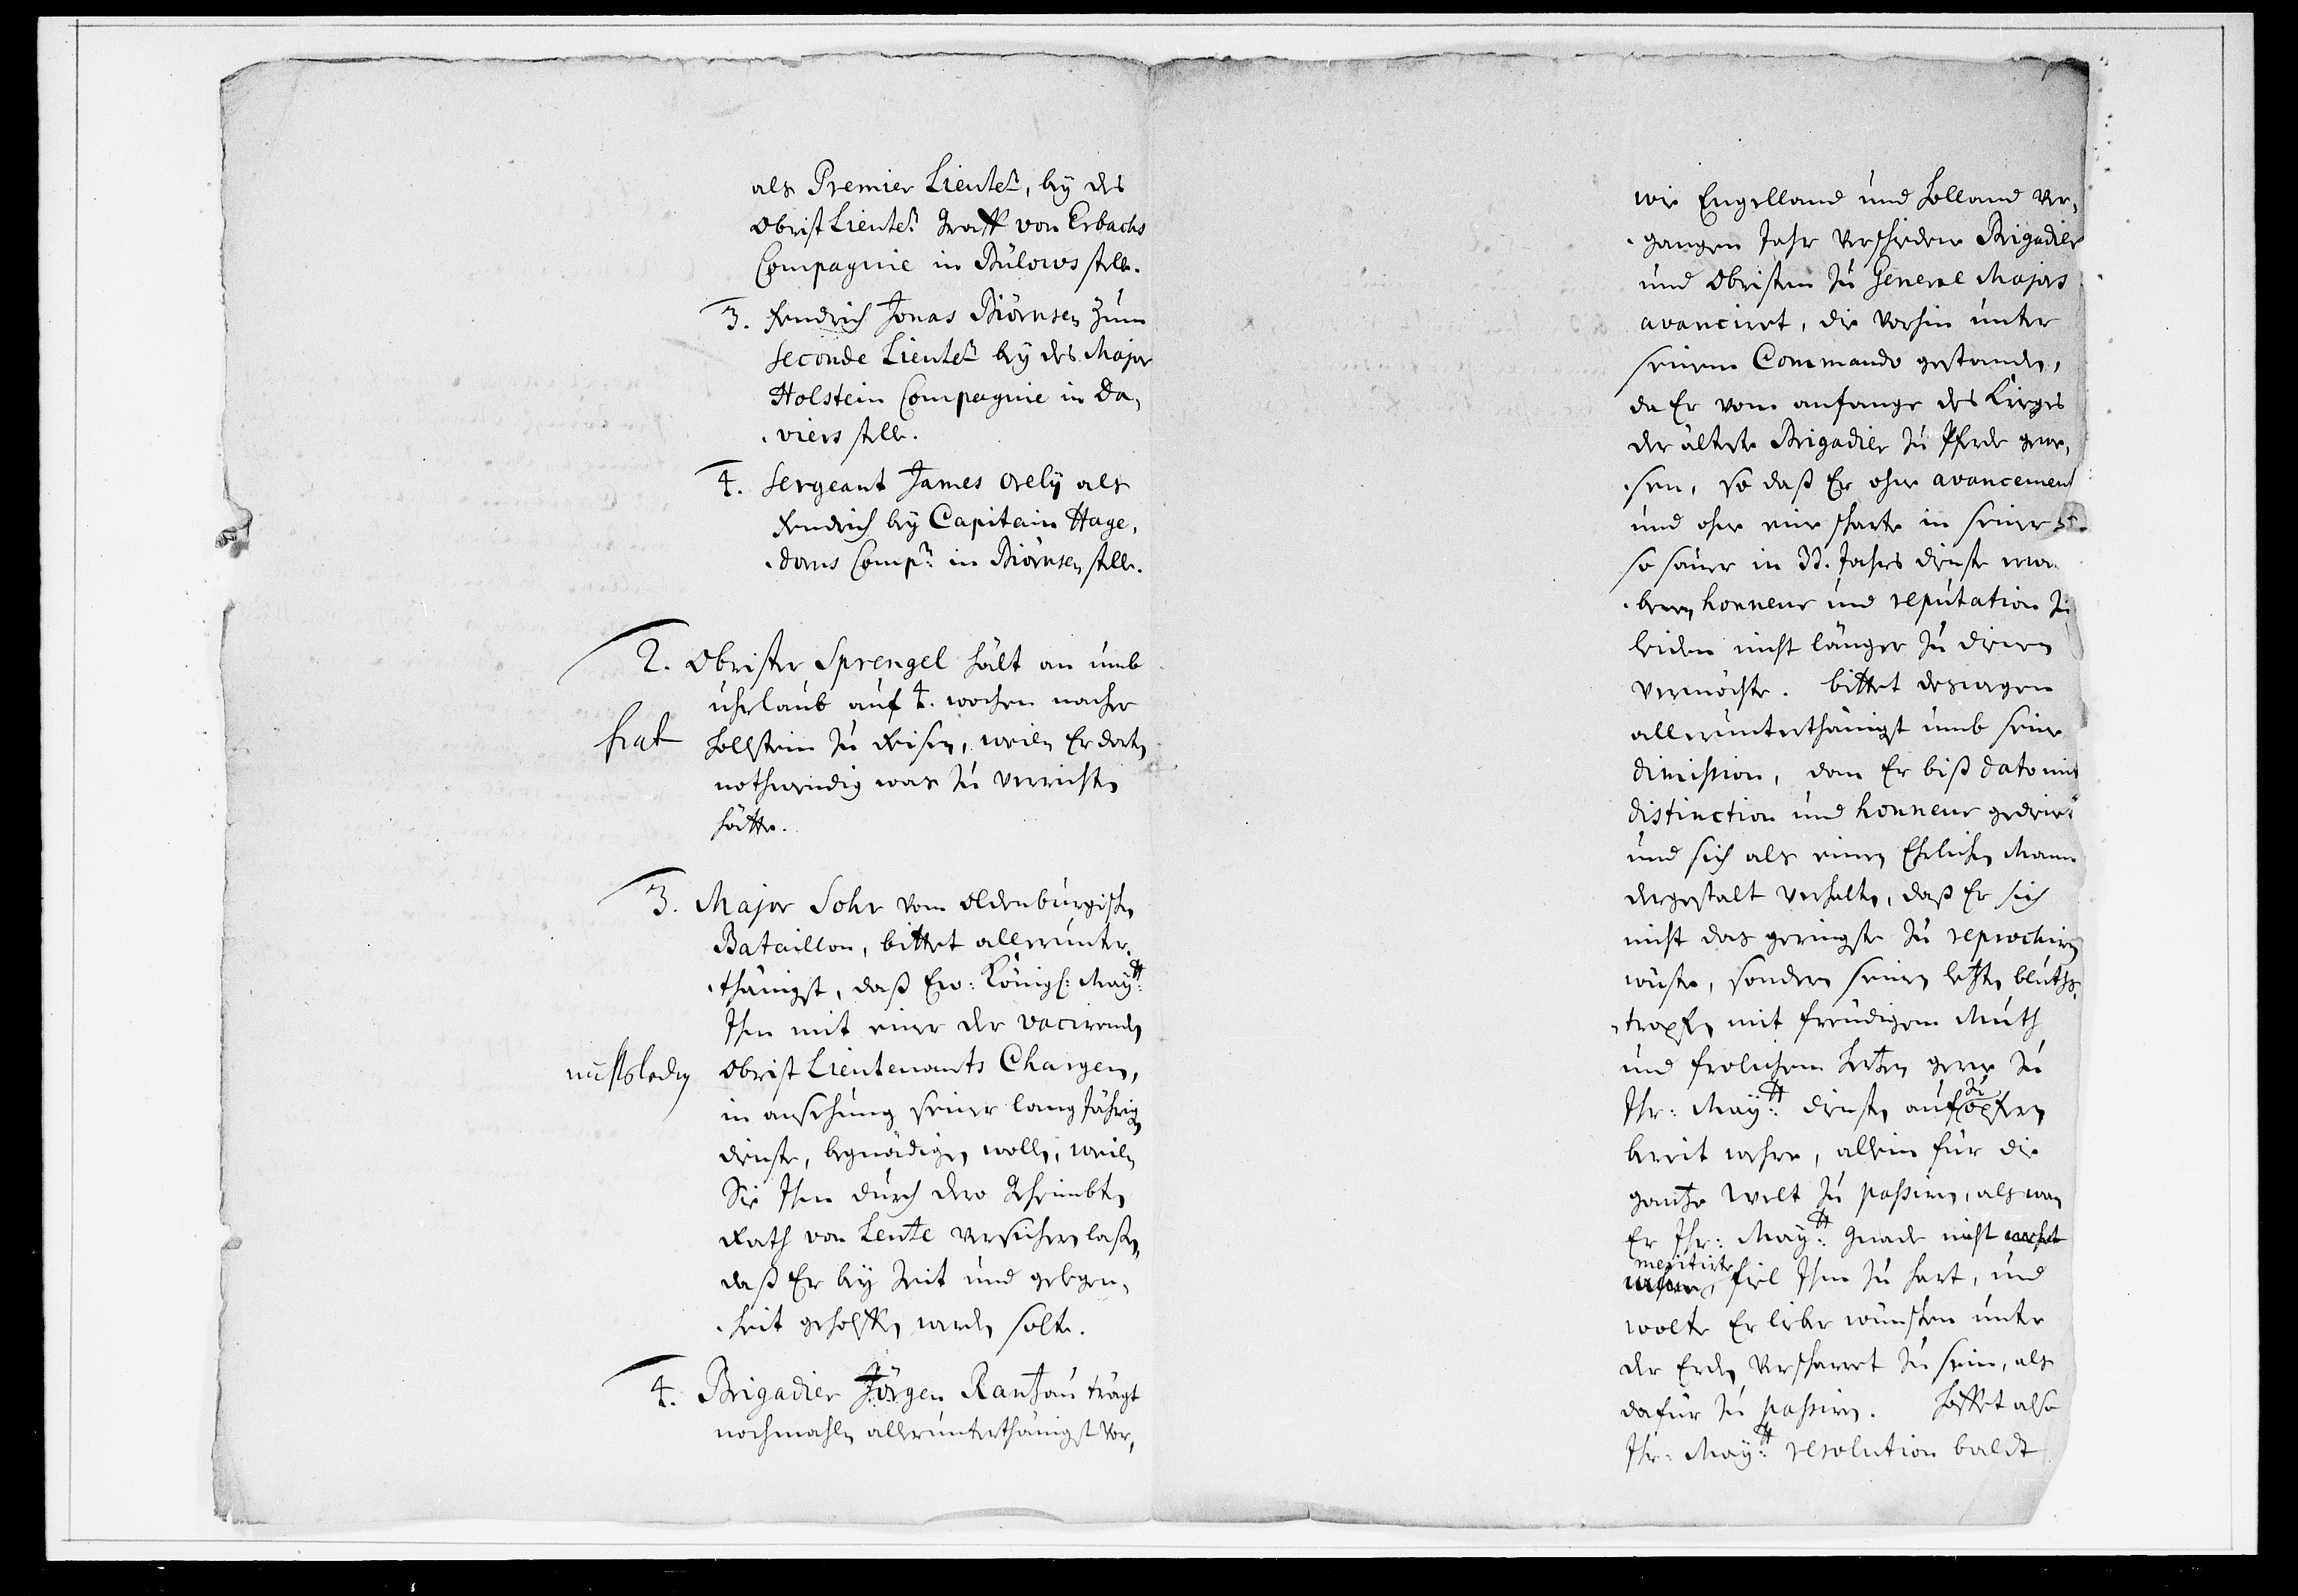 als Premier Lieutet, bey des
Obrist Lieutet Graff von Erbachs
Compagnie in Bülows stelle.
3. Fendrich Jonas Biörnsen zum
seconde Lieutet bey des Major
Holstein Compagnie in Da,
viers stelle.
4. Sergeant James Orely als
Fendrich bey Capitain Hage,
dorns Comp: in Biörnsen stelle.
2. Obrister Sprengel hält an umb
uhrlaub auf 4. wochen nacher
hat
Hollstein zu Reisen, weiln Er dorten
nothwendig was zu verrichten
hätte.
3. Major Sohr vom Oldenburgischen
Bataillon, bittet allerunter,
thänigst, daß Ew: Königl: Maytt:
Ihn mit einer der vacirenden
Obrist Lieutenants Chargen,
in ansehung seiner lang Jährigen
dienste, begnädigen wollen, weiln
Sie Ihn durch dero Geheimbten
Rath von Lente versichern laßen,
daß Er bey Zeit und gelegen,
heit geholffen werden solte.
4. Brigadier Jörgen Rantzau trägt
nochmahln allerunterthänigst vor,
wie Engelland und Holland ver,
gangen Jahr verschiedene Brigadier
und Obristen zu General Majors
avanciret, die vorhin unter
seinem Commando gestanden,
da Er vom anfange des Krieges
der älteste Brigadier zu Pferde gewe,
sen, so daß Er ohne avancement
und ohne eine scharte in seiner
so sauer in 33. Jahres dienste
honneur und reputation zu
leiden nicht länger zu dienen
vermöchte. bittet deswegen
allerunterthänigst umb seine
dimission, dan Er biß dato mit
distinction und honneur gedient
und sich als einen Ehrlichen Mann
dergestalt verhalten, daß Er sich
nicht das geringste zu reprochiren
wüste, sondern seinen letzten bluths,
tropfen mit freudigem Muth
und frolichem Hertzen gerne zu
Ihr: Maytt: diensten aufzuopfern
bereit wehre, allein für die
gantze Welt zu passiren, als wan
Er Ihr: Maytt: Gnade nicht
meritirte, fiel Ihm zu hart, und
wolte Er lieber wünschen unter
der Erden verscharret zu sein, als
dafür zu passiren. Hoffet also
Ihr: Maytt: resolution baldt